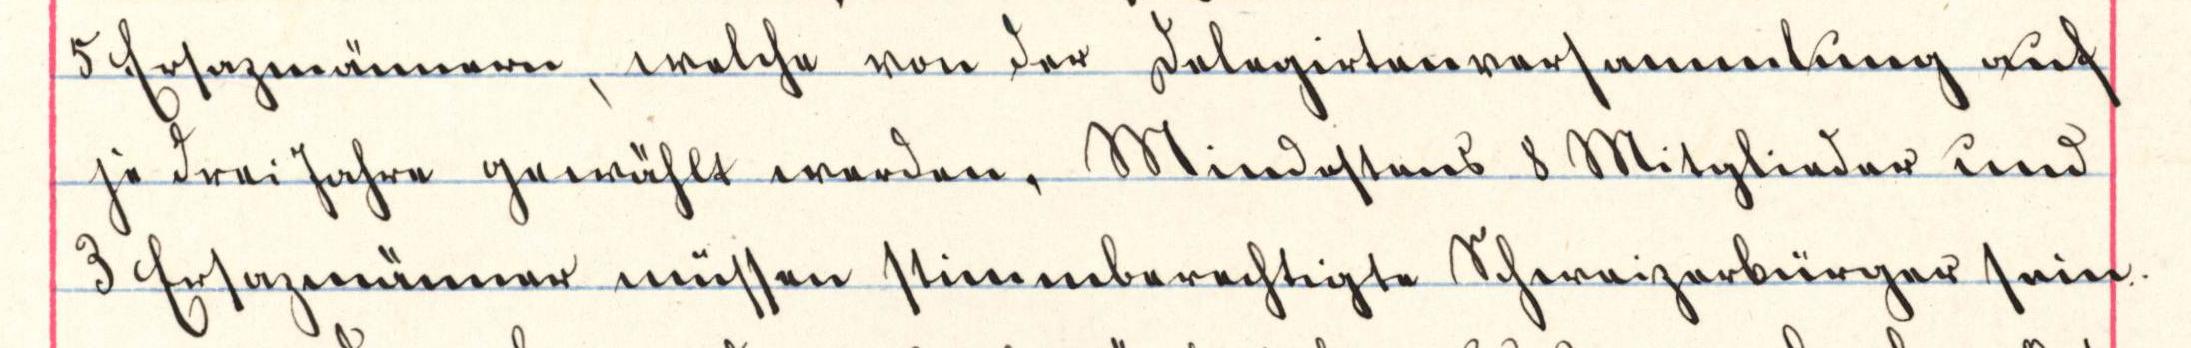 5 Ersazmännern, welche von der Delegirtenversammlung auf
je drei Jahre gewählt werden. Mindestens 8 Mitglieder und
3 Ersazmänner müssen stimmberechtigte Schweizerbürger sein.